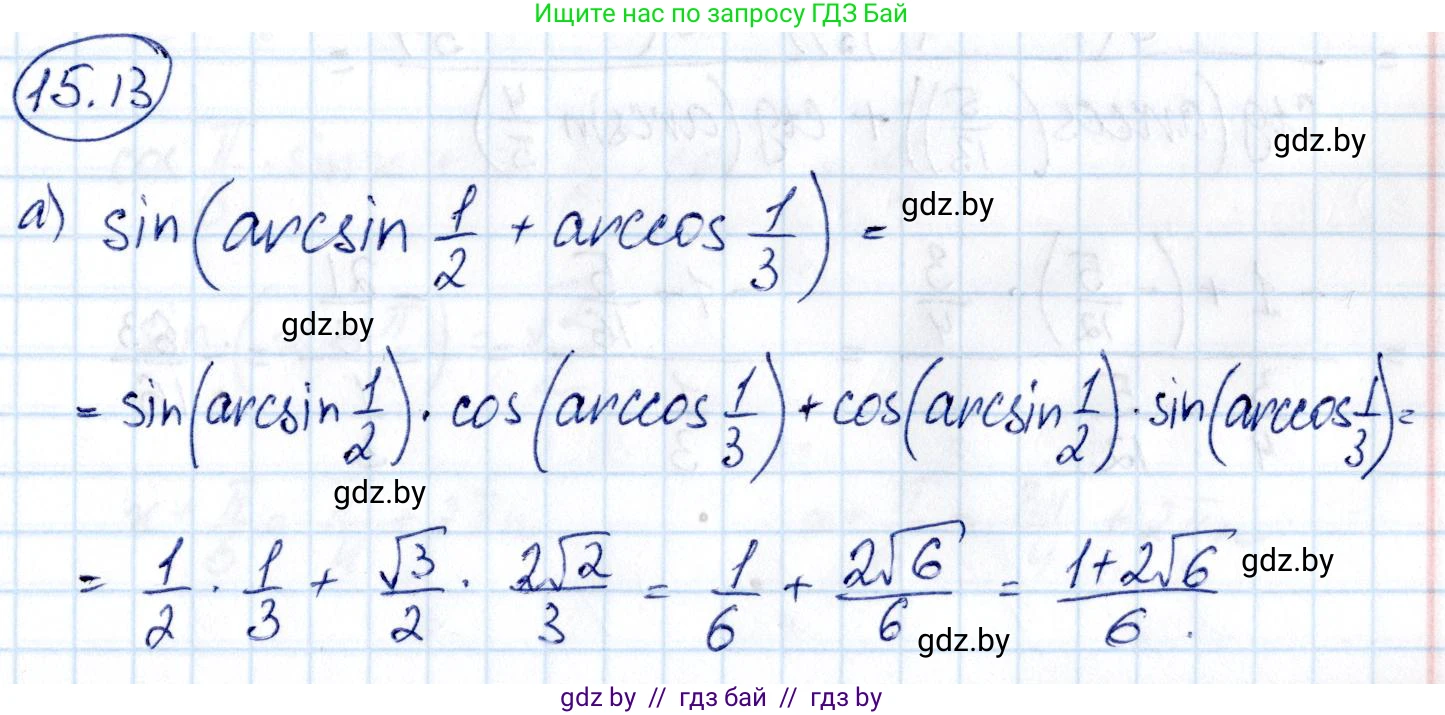 Ищите нас по запросу ГДЗ Бай
15.13
gdz.by
а) sin(arcsin 1/2 + arccos 1/3) =
gdz.by
gdz.by
= sin(arcsin 1/2) · cos(arccos 1/3) + cos(arcsin 1/2) · sin(arccos 1/3) =
gdz.by
= 1/2 · 1/3 + √3/2 · 2√2/3 = 1/6 + 2√6/6 = (1+2√6)/6 .
gdz.by
gdz.by
gdz.by // гдз бай // гдз by